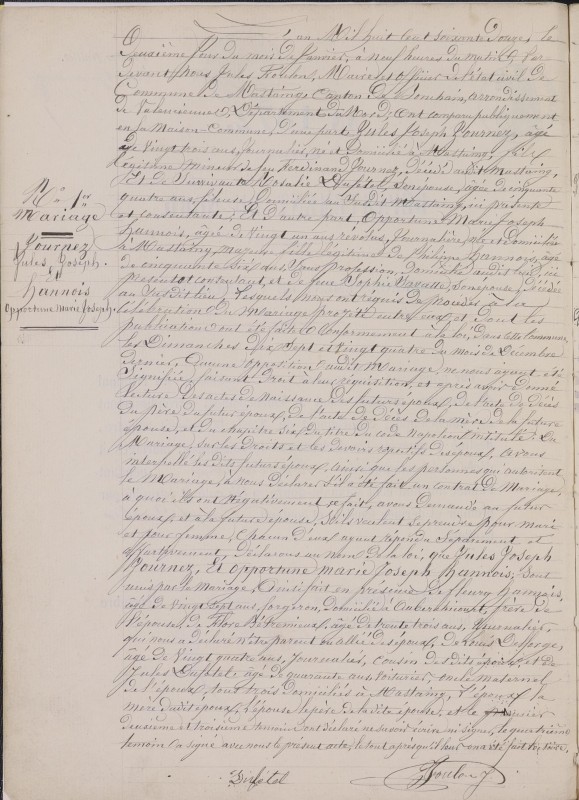 N.° 1.er
Mariage
Journez
Jules Joseph.
Et
Hannois
Opportune Marie Joseph.
L'an Mil huit cent soixante douze, le
deuxième jour du mois de Janvier, à neuf heures du matin, Par
devant Nous Jules Maire et officier de l'état civil de
Commune de Mastaing Canton de Bouchain, arrondissement
de Valenciennes, Département du Nord; Ont comparu publiquement
en la Maison-Commune, d'une part Jules Joseph Journez, âgé
de vingt trois ans, journalier, né et Domicilié à Mastaing, fils
légitime mineur de feu Ferdinand Journez, Décédé audit Mastaing,
Et de Survivante Rosalie Dufetel, son épouse, âgée de cinquante
quatre ans, fileuse, Domiciliée au susdit Mastaing, ici présente
et consentante; Et d'autre part Opportune Marie Joseph
Hannois, âgée de vingt un ans révolus, Journalière, née et domiciliée
à Mastaing, majeure fille légitime de Philippe Hannois, âgé
de cinquante six ans, Sans profession, Domicilié audit lieu, ici
présent et consentant, et de feue Sophie son épouse, Décédée
au susdit lieu; Lesquels nous ont requis de procéder à la
célébration du Mariage projeté entre eux, et dont les
publications ont été faites Conformément à la loi, dans cette commune
les Dimanches dix Sept et vingt quatre du mois de Décembre
dernier. Aucune opposition audit Mariage, ne nous ayant été
Signifiée, faisant Droit à leur réquisition, et après avoir donné
lecture des actes de Naissance des futurs époux, de l'acte de décès
du père du futur époux, de l'acte de décès de la mère de la future
épouse, et du chapitre six du titre du code Napoléon intitulé: Du
Mariage, sur les Droits et les devoirs respectifs des époux, avons
interpellé les dits futurs époux, ainsi que les personnes qui autorisent
le Mariage, à nous déclarer s'il a été fait un contrat de Mariage,
à quoi ils ont négativement fait, avons Demandé au futur
époux, et à la future épouse, s'ils veulent se prendre pour mari
et pour femme, Chacun d'eux ayant répondu Séparément et
affirmativement, Déclarons au nom de la loi, que Jules Joseph
Journez, Et Opportune Marie Joseph Hannois, Sont
unis par le Mariage, Ainsi fait en présence de fleury Hannois,
âgé de vingt Sept ans, forgeron, Domicilié à frère de
l'épouse, de Flore âgé de trente trois ans, Journalier,
qui nous a déclaré n'être parent ou allié des époux, de Louis Desforges,
âgé de vingt quatre ans, Journalier, cousin de dite épouse, et de
Jules Dufetel âgé de quarante ans, voiturier, oncle maternel
de l'époux, tous trois domiciliés à Mastaing, L'époux, la
mère dudit époux, l'épouse, le père de la dite épouse, et le premier
deuxième et troisième témoin ont déclaré ne savoir écrire ni signer, le quatrième
témoin l'a signé avec nous le présent acte, le tout après qu'il leur en a été fait lecture.
Dufétel